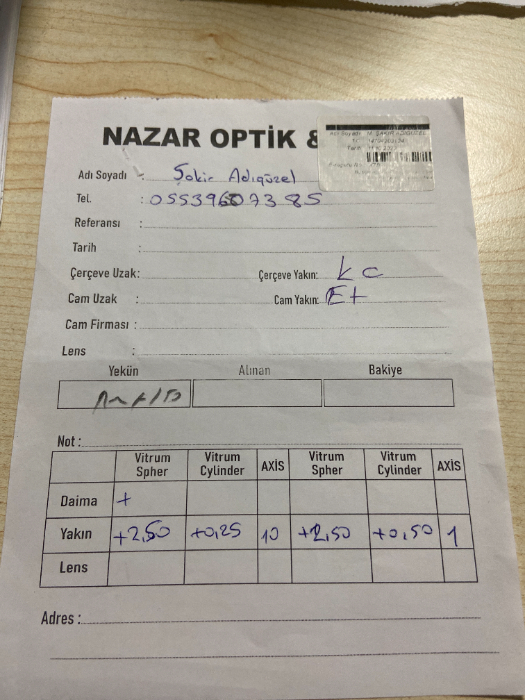 NAZAR OPTİK &
Adı Soyadı : Şakir Adıgüzel
Tel. : 05539607385
Referansı :
Tarih :
Çerçeve Uzak: Çerçeve Yakın: kc
Cam Uzak : Cam Yakın: Et
Cam Firması :
Lens :
Yekün Alınan Bakiye
Not :
Vitrum Spher Vitrum Cylinder AXİS Vitrum Spher Vitrum Cylinder AXİS
Daima +
Yakın +2,50 +0,25 10 +2,50 +0,50 1
Lens
Adres :